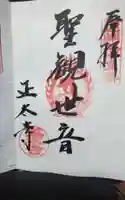 奉拝
聖観世音
正太寺